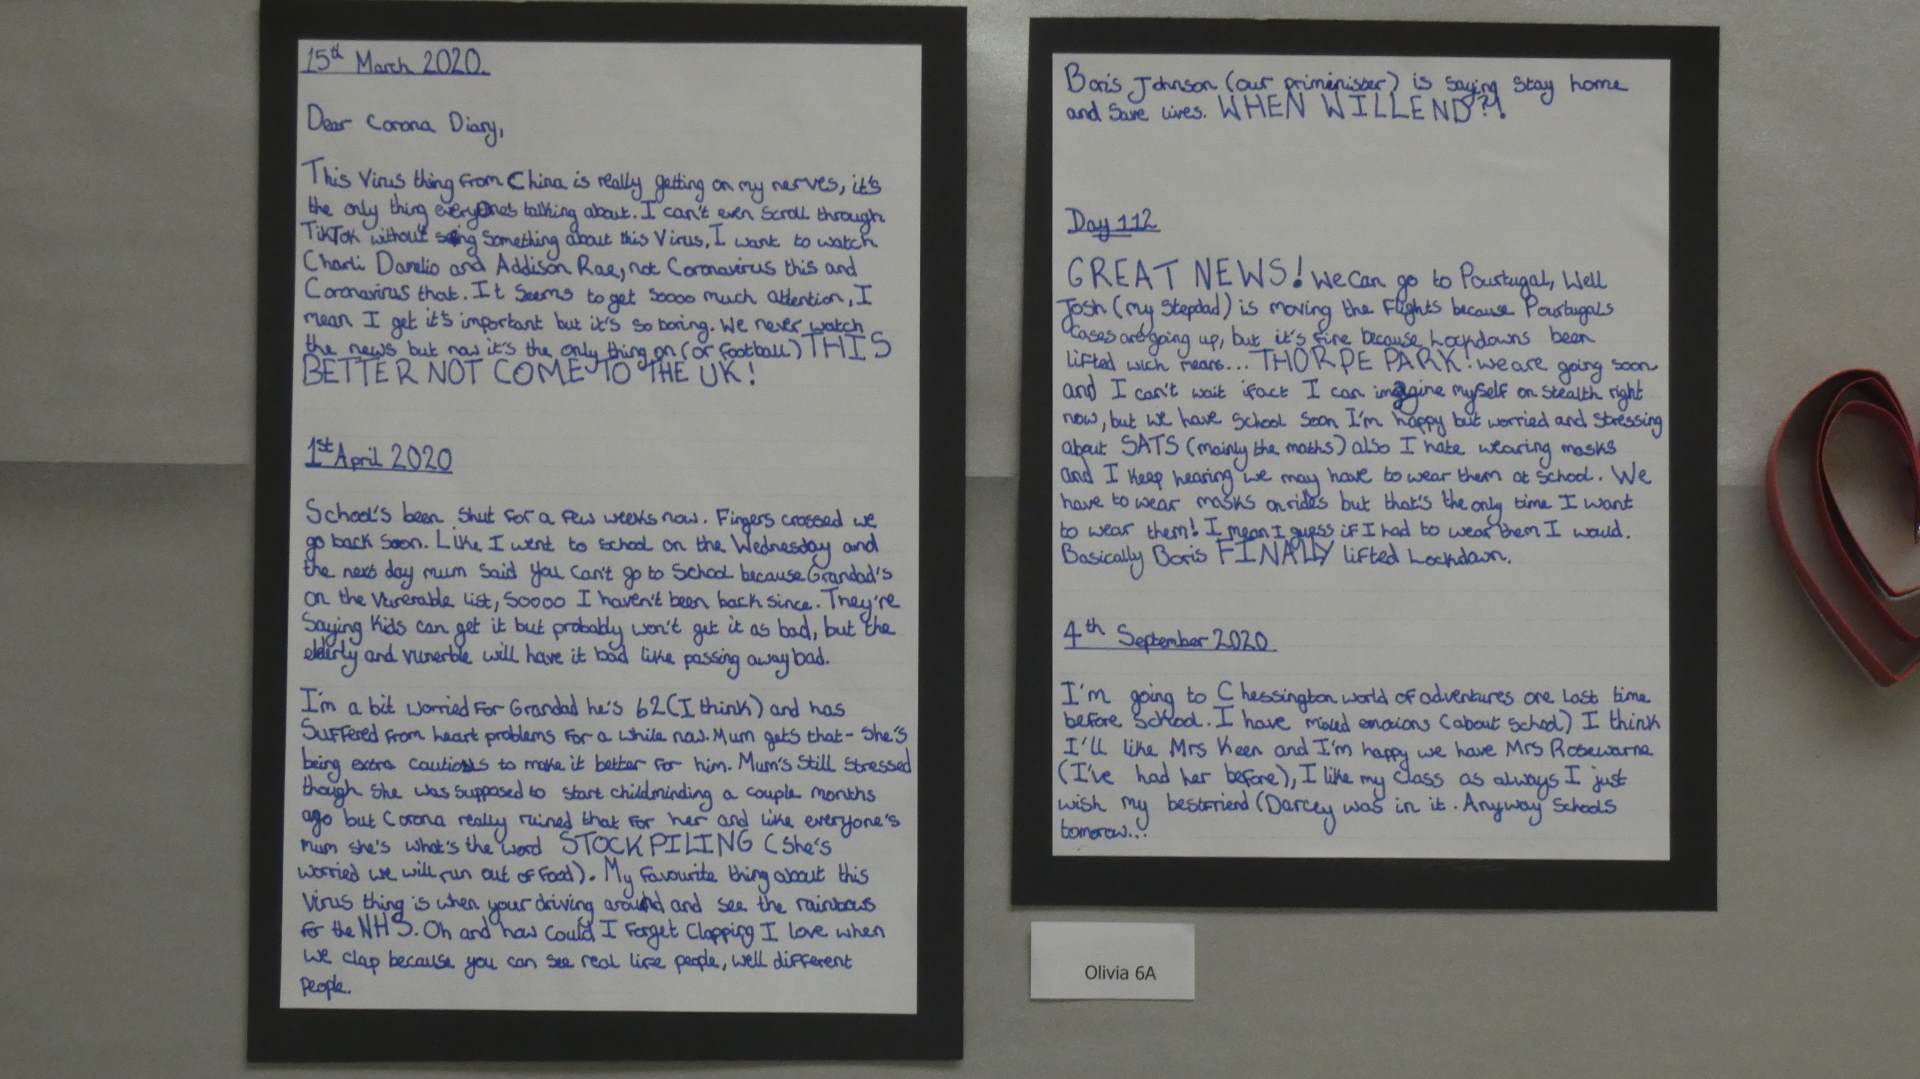 15th March 2020.
Dear Corona Diary,
This Virus thing from China is really getting on my nerves, it's
the only thing everyones talking about. I can't even scroll through
TikTok without seing something about this Virus, I want to watch
Charli Damelio and Addison Rae, not Coronavirus this and
Coronavirus that. It seems to get soooo much attention, I
mean I get it's important but it's so boring. We never watch
the news but now it's the only thing on (or football) THIS
BETTER NOT COME TO THE UK!
1st April 2020
School's been shut for a few weeks now. Fingers crossed we
go back soon. Like I went to school on the Wednesday and
the next day mum said you can't go to school because Grandad's
on the Vunerable list, soooo I haven't been back since. They're
saying kids can get it but probably won't get it as bad, but the
elderly and vunerble will have it bad like passing away bad.
I'm a bit worried for Grandad he's 62 (I think) and has
suffered from heart problems for a while now. Mum gets that - she's
being extra cautious to make it better for him. Mum's still stressed
though she was supposed to start childminding a couple months
ago but Corona really ruined that for her and like everyone's
mum she's what's the word STOCKPILING (she's
worried we will run out of food). My favourite thing about this
virus thing is when your driving around and see the rainbows
for the NHS. Oh and how could I forget clapping I love when
we clap because you can see real life people, well different
people.
Boris Johnson (our priminister) is saying stay home
and save lives. WHEN WILL END?!
Day 112
GREAT NEWS! We can go to Pourtugal, Well
Josh (my stepdad) is moving the flights because Pourtugals
cases are going up, but it's fine because Lockdowns been
lifted wich means... THORPE PARK! we are going soon
and I can't wait ifact I can imagine myself on stealth right
now, but we have school soon I'm happy but worried and stressing
about SATS (mainly the maths) also I hate wearing masks
and I keep hearing we may have to wear them at school. We
have to wear masks on rides but that's the only time I want
to wear them! I mean I guess if I had to wear them I would.
Basically Boris FINALLY lifted Lockdown.
4th September 2020
I'm going to Chessington world of adventures one last time
before school. I have mixed emoxions (about school) I think
I'll like Mrs Keen and I'm happy we have Mrs Rosewarne
(I've had her before), I like my class as always I just
wish my bestfriend (Darcey was in it. Anyway schools
tomorow...
Olivia 6A